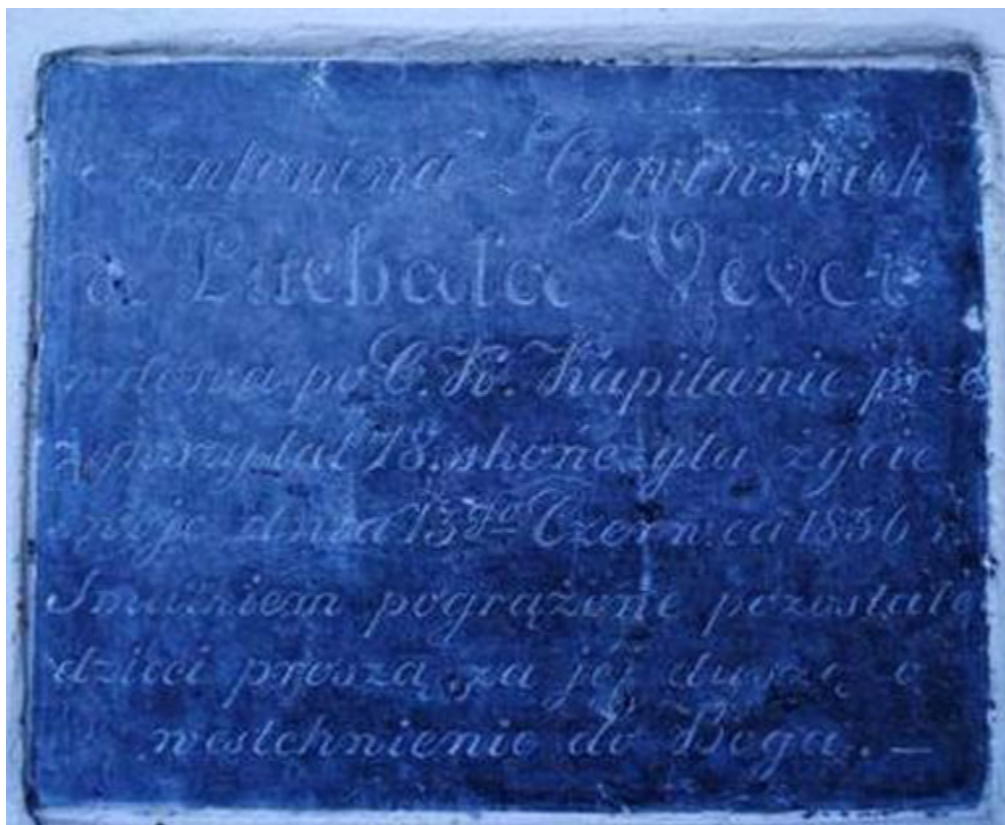 Antonina Cywinskich
a Puchała Vevet
wdowa po C. K. Kapitanie prze
żywszy lat 78. skończyła życie
swoje dnia 13go Czerwca 1856 r.
Smutkiem pogrążone pozostałe
dzieci proszą za jej duszę o
westchnienie do Boga. —